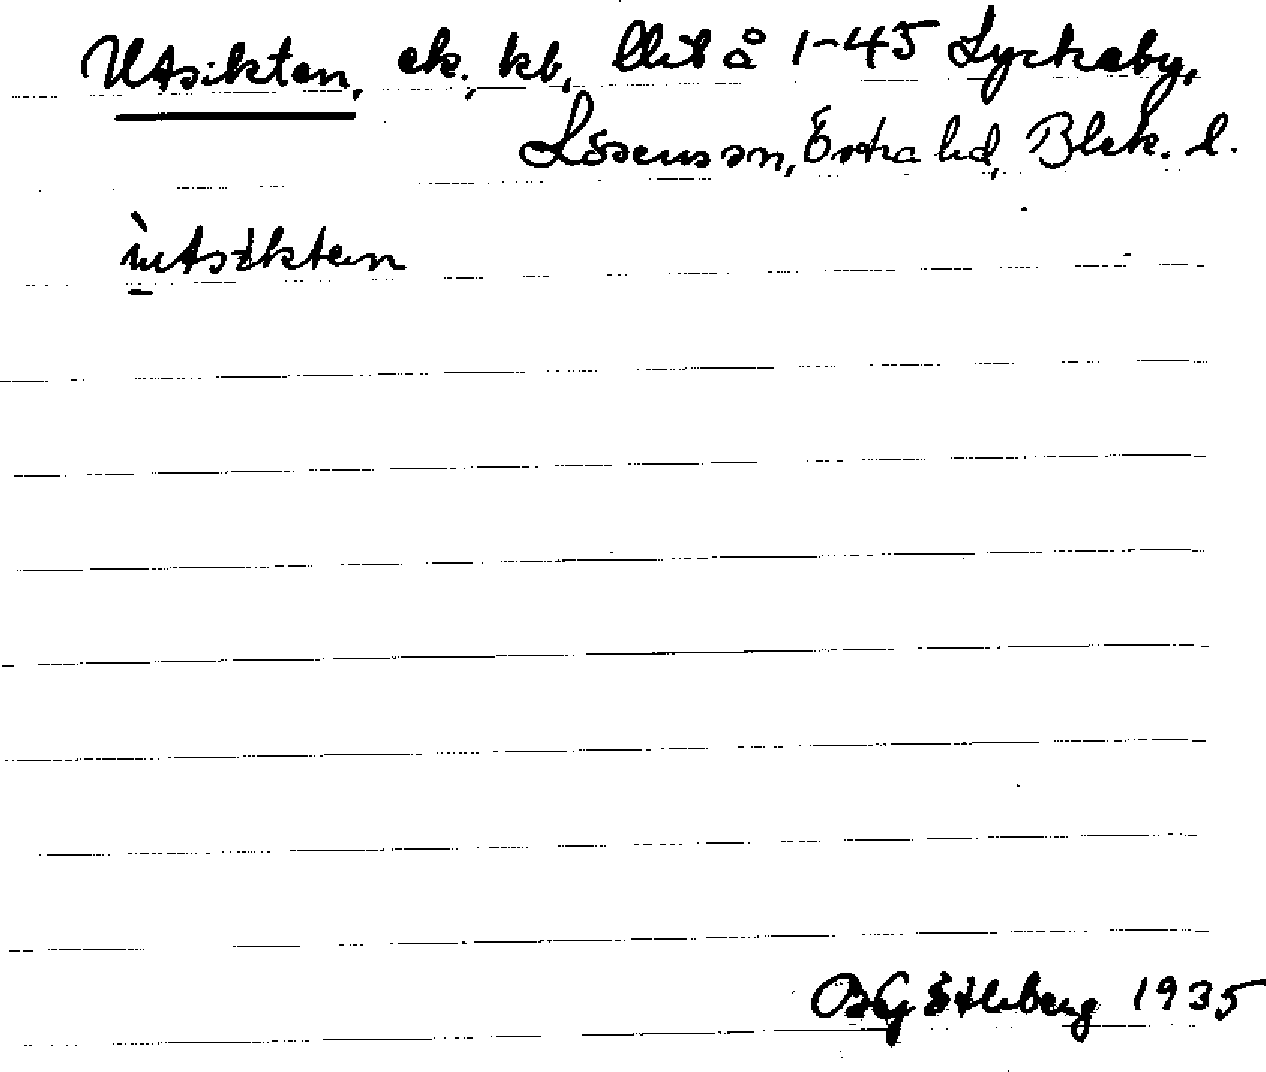 Utsikten, ek., kb, llit å 1-45 Lyckeby,
Lösens sn, Östra hd, Blek. l.
ùtsikten
BG Stleberg 1935